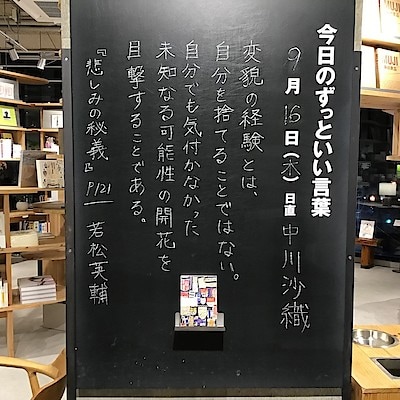 今日のずっといい言葉
9月16日(木) 日直 中川沙織
変貌の経験とは、
自分を捨てることではない。
自分でも気付かなかった
未知なる可能性の開花を
目撃することである。
『悲しみの秘義』P121 若松英輔
MUJI